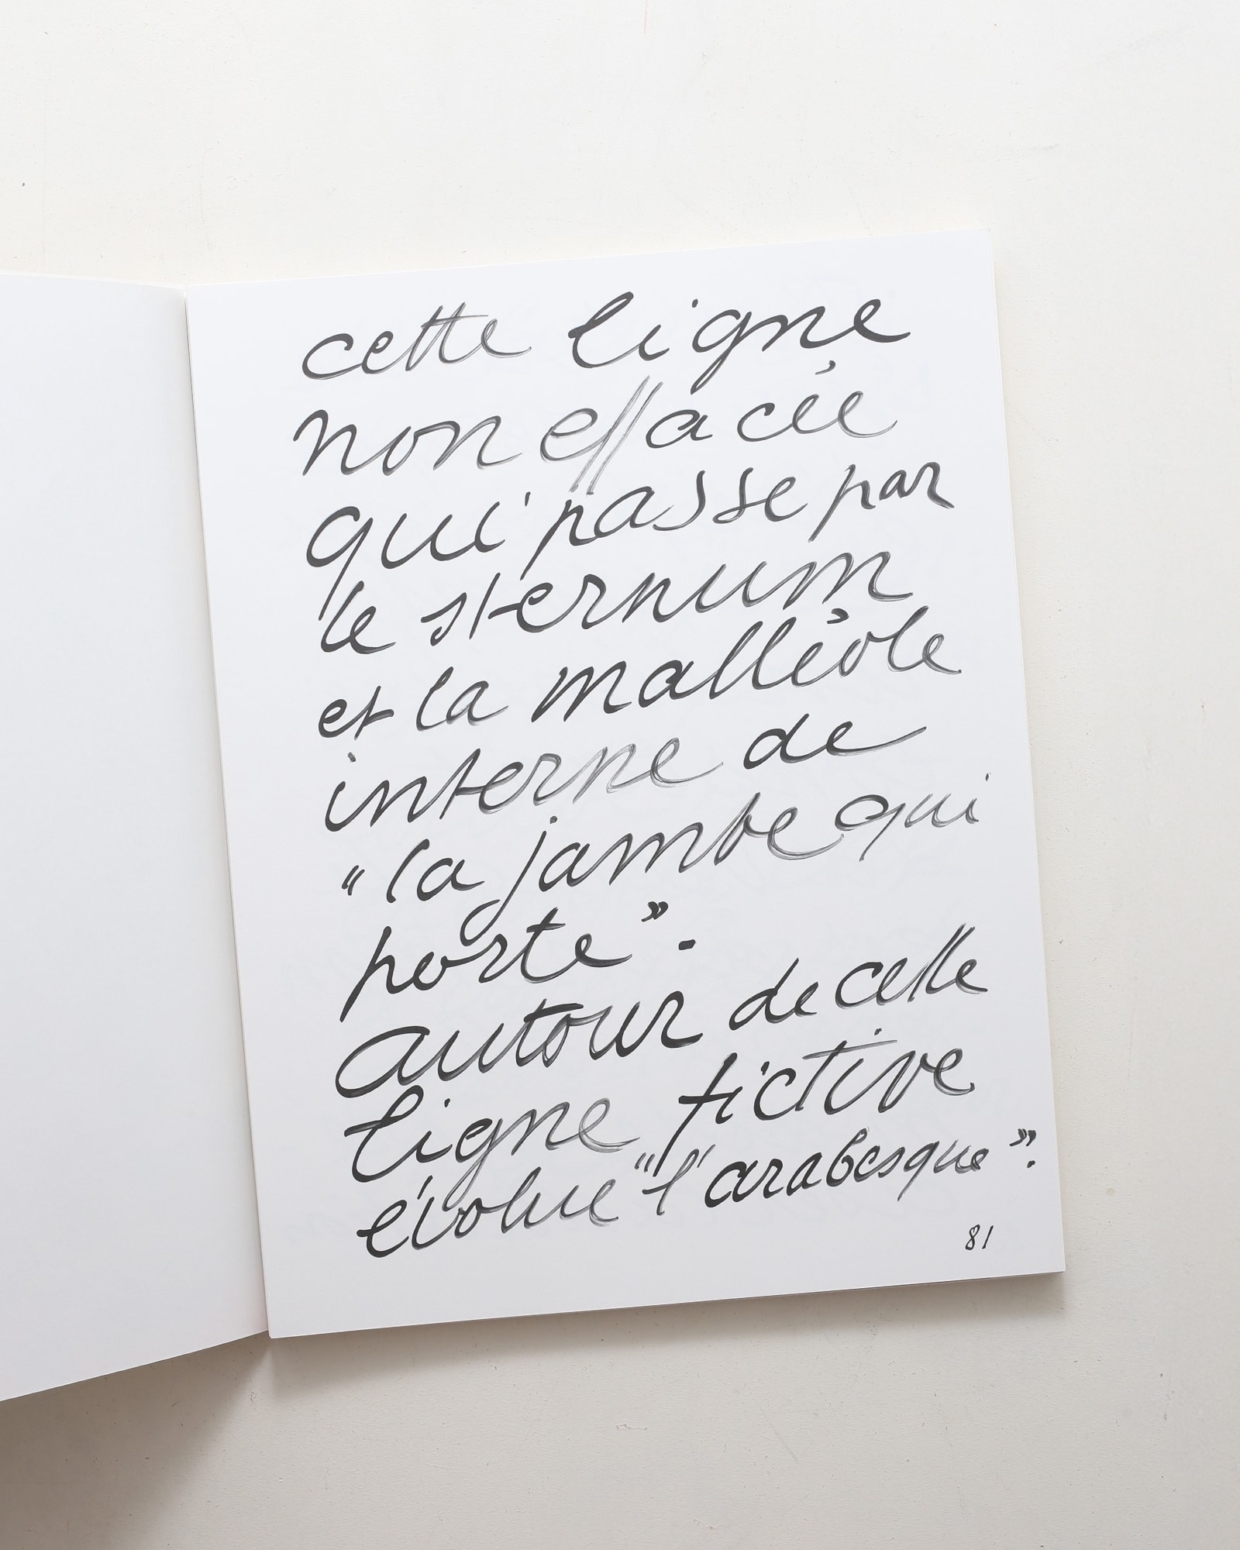 cette ligne
non effacée
qui passe par
le sternum
et la malléole
interne de
“la jambe qui
porte”.
autour de cette
ligne fictive
évolue “l'arabesque”.
81